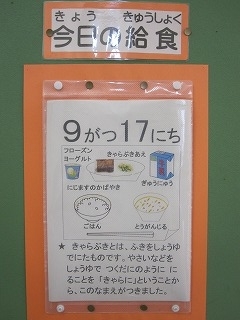 きょう きゅうしょく
今日の給食
9がつ17にち
フローズン
ヨーグルト
きゃらぶきあえ
ぎゅうにゅう
にじますのかばやき
ごはん
とうがんじる
★ きゃらぶきとは、ふきをしょうゆ
でにたものです。やさいなどを
しょうゆで つくだにのように に
ることを「きゃらに」ということか
ら、このなまえがつきました。